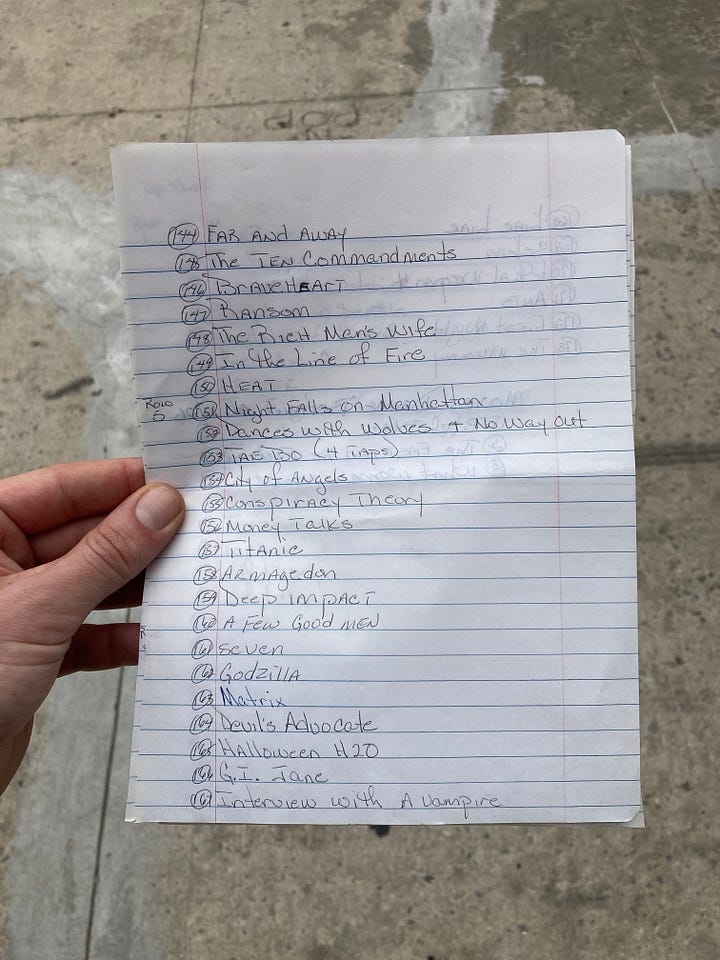 144 FAR AND AWAY
145 The TEN Commandments
146 BRAVEHEART
147 Ransom
148 The Rich Men's Wife
149 In the Line of Fire
150 HEAT
Row 5
151 Night Falls on Manhattan
152 Dances with Wolves & No Way Out
153 TAE BO (4 Taps)
154 City of Angels
155 Conspiracy Theory
156 Money Talks
157 Titanic
158 ARMAgedon
159 Deep impact
160 A Few Good MEN
161 seven
162 Godzilla
163 Matrix
164 Devil's Advocate
165 HAlloween H20
166 G.I. Jane
167 Interview with A vampire